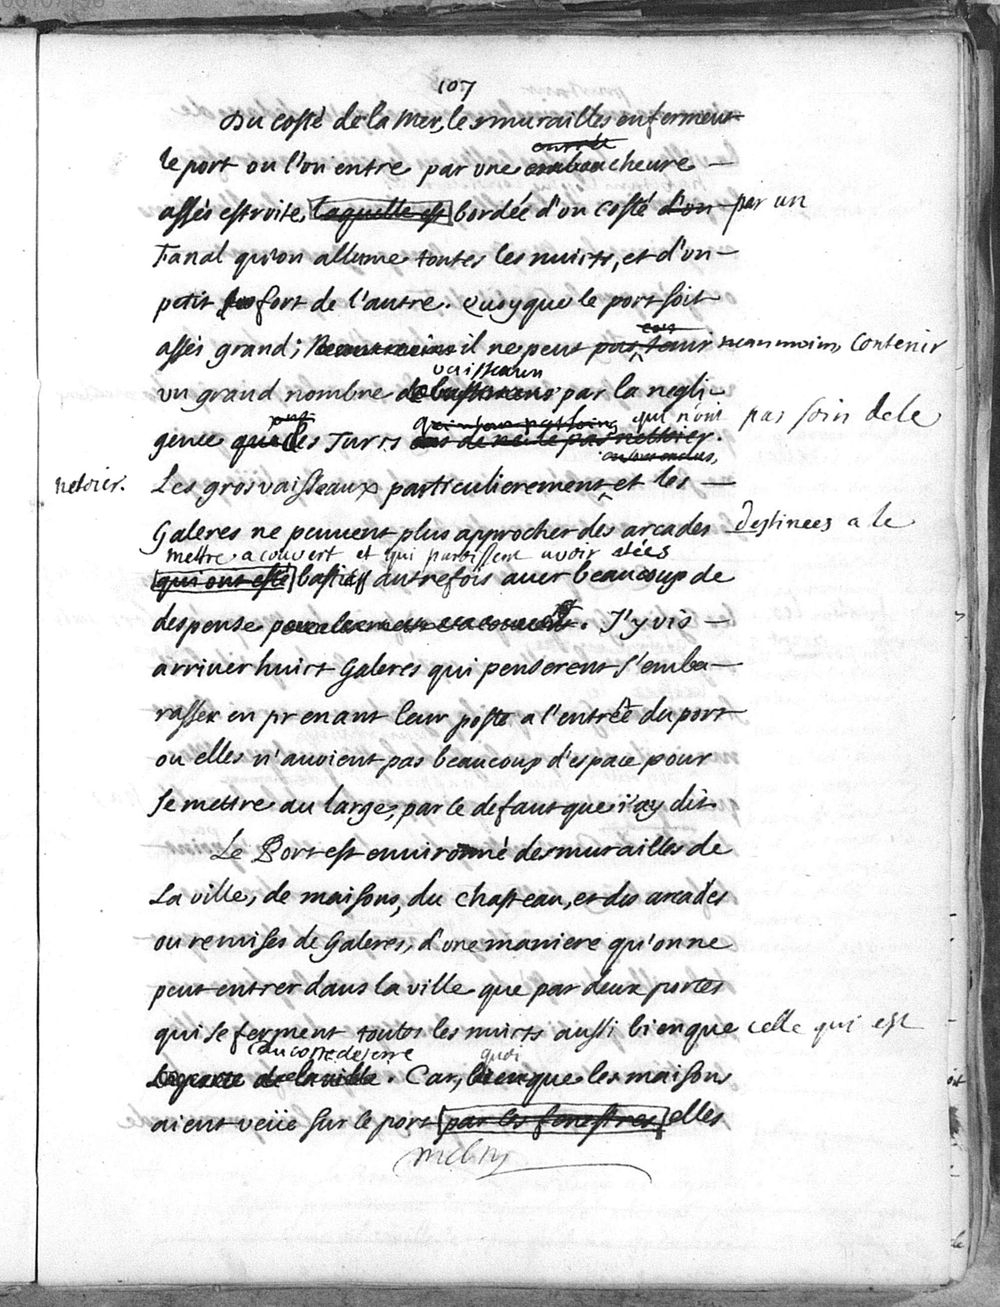 107
Du costé de la Mer, les murailles enferment
le port ou l'on entre par une embaucheure
assés estroite laquelle est bordée d'un costé d'un par un
Fanal qu'on allume toutes les nuicts, et d'un
petit fort de l'autre. Quoyque le port soit
assés grand; il ne peut pas tenir neanmoins contenir
vaisseaux
un grand nombre de bastimens par la negli
qui n'ont pas soin de le
gence que les Turcs
netoier.
Les gros vaisseaux particulierement et les
Galeres ne peuvent plus approcher des arcades destinees a le
mettre a couvert et qui paroissent avoir etées
qui ont esté basties autrefois avec beaucoup de
despense. J'y vis
arriver huict Galeres qui penserent s'emba
rasser en prenant leur poste a l'entrée du port
ou elles n'avoient pas beaucoup d'espace pour
se mettre au large, par le defaut que i'ay dit
Le Port est environné des murailles de
La ville, de maisons, du chasteau, et des arcades
ou remises de Galeres, d'une maniere qu'on ne
peut entrer dans la ville que par deux portes
qui se ferment toutes les nuicts aussi bien que celle qui est
du costé de terre
quoi
de la ville. Car, bien que les maisons
aient veüe sur le port par les fenestres elles